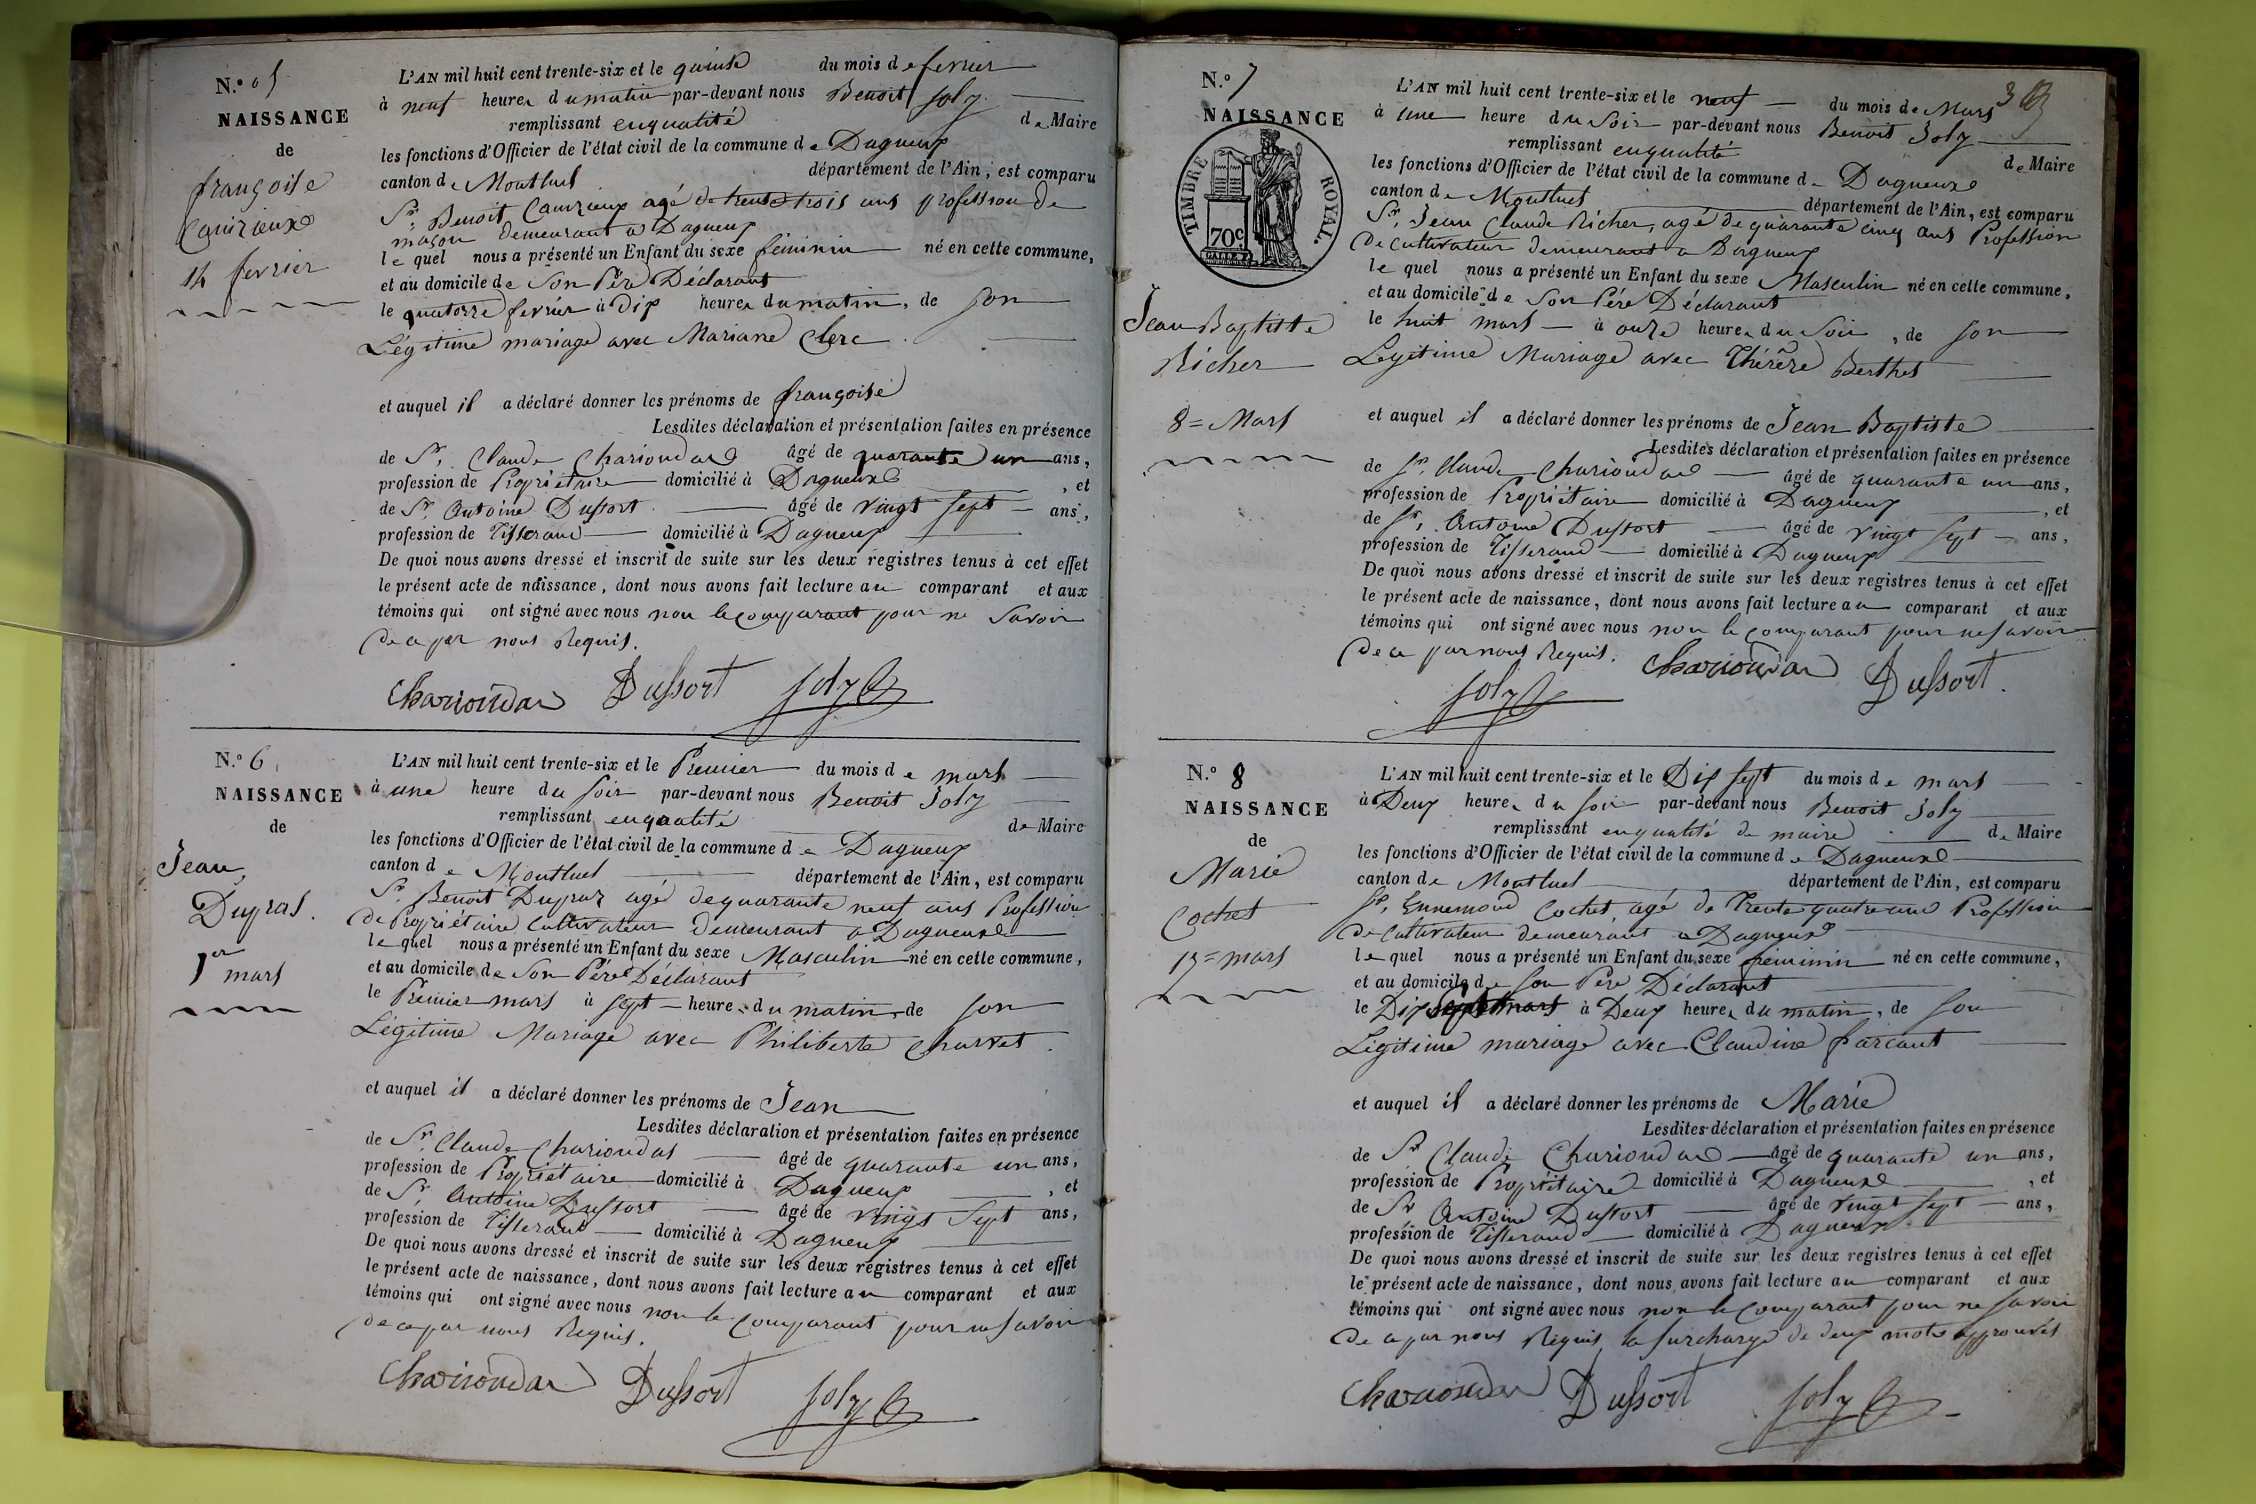 N.° 05
NAISSANCE
de
françoise
Cauzieux
14 fevrier
L'AN mil huit cent trente-six et le quinse du mois de fevrier
à neuf heures du matin par-devant nous Benoit Joly
remplissant enqualité de Maire
les fonctions d'Officier de l'état civil de la commune de Dagneux
canton de Montluel département de l'Ain, est comparu
Sr. Benoit Cauzieux agé de trente trois ans profession de
maçon demeurant a Dagneux
le quel nous a présenté un Enfant du sexe féminin né en cette commune,
et au domicile de Son Père Déclarant
le quatorze fevrier à Dix heures du matin, de son
Légitime mariage avec Mariane Clerc
et auquel il a déclaré donner les prénoms de françoise
Lesdites déclaration et présentation faites en présence
de Sr. Claude Charioudas âgé de quarante un ans,
profession de Propriétaire domicilié à Dagneux, et
de Sr. Antoine Dussort âgé de vingt sept ans,
profession de Tisserand domicilié à Dagneux
De quoi nous avons dressé et inscrit de suite sur les deux registres tenus à cet effet
le présent acte de naissance, dont nous avons fait lecture au comparant et aux
témoins qui ont signé avec nous non le comparant pour ne Savoir
de ce par nous Requis.
Charioudas Dussort Joly
N.° 6
NAISSANCE
de
Jean
Dupras.
1er mars
L'AN mil huit cent trente-six et le Premier du mois de mars
à une heure du soir par-devant nous Benoit Joly
remplissant enqualité de Maire
les fonctions d'Officier de l'état civil de la commune de Dagneux
canton de Montluel département de l'Ain, est comparu
Sr. Benoit Dupraz agé de quarante neuf ans Profession
de Propriétaire Cultivateur demeurant a Dagneux
le quel nous a présenté un Enfant du sexe Masculin né en cette commune,
et au domicile de Son Père Déclarant
le Premier mars à sept heures du matin de son
Légitime Mariage avec Philiberte Charvet.
et auquel il a déclaré donner les prénoms de Jean
Lesdites déclaration et présentation faites en présence
de Sr. Claude Charioudas âgé de quarante un ans,
profession de Propriétaire domicilié à Dagneux, et
de Sr. Antoine Dussort âgé de vingt Sept ans,
profession de Tisserand domicilié à Dagneux
De quoi nous avons dressé et inscrit de suite sur les deux registres tenus à cet effet
le présent acte de naissance, dont nous avons fait lecture au comparant et aux
témoins qui ont signé avec nous non le comparant pour ne savoir
de ce par nous Requis.
Charioudas Dussort Joly
3
N.° 7
NAISSANCE
TIMBRE ROYAL.
70c
Jean Baptiste
Richer
8= Mars
L'AN mil huit cent trente-six et le neuf du mois de Mars
à une heure du Soir par-devant nous Benoit Joly
remplissant enqualité de Maire
les fonctions d'Officier de l'état civil de la commune de Dagneux
canton de Montluel département de l'Ain, est comparu
Sr. Jean Claude Richer, agé de quarante cinq ans Profession
de Cultivateur demeurant a Dagneux
le quel nous a présenté un Enfant du sexe Masculin né en cette commune,
et au domicile de Son Père Déclarant
le huit mars à onze heures du Soir, de son
Legitime Mariage avec Thérèze Berthet
et auquel il a déclaré donner les prénoms de Jean Baptiste
Lesdites déclaration et présentation faites en présence
de Sr. Claude Charioudas âgé de quarante un ans,
profession de Propriétaire domicilié à Dagneux, et
de Sr. Antoine Dussort âgé de vingt sept ans,
profession de Tisserand domicilié à Dagneux
De quoi nous avons dressé et inscrit de suite sur les deux registres tenus à cet effet
le présent acte de naissance, dont nous avons fait lecture au comparant et aux
témoins qui ont signé avec nous non le comparant pour ne savoir
de ce par nous Requis. Charioudas Dussort.
Joly
N.° 8
NAISSANCE
de
Marie
Cochet
17= mars
L'AN mil huit cent trente-six et le Dix sept du mois de mars
à Deux heures du soir par-devant nous Benoit Joly
remplissant enqualité de maire de Maire
les fonctions d'Officier de l'état civil de la commune de Dagneux
canton de Montluel département de l'Ain, est comparu
Sr. Ennemond Cochet, agé de Trente quatre ans Profession
de Cultivateur demeurant a Dagneux
le quel nous a présenté un Enfant du sexe feminin né en cette commune,
et au domicile de son Père Déclarant
le Dix Sept mars à Deux heures du matin, de son
Légitime mariage avec Claudine farcaut
et auquel il a déclaré donner les prénoms de Marie
Lesdites déclaration et présentation faites en présence
de Sr Claude Charioudas âgé de quarante un ans,
profession de Propriétaire domicilié à Dagneux, et
de Sr Antoine Dussort âgé de vingt sept ans,
profession de Tisserand domicilié à Dagneux
De quoi nous avons dressé et inscrit de suite sur les deux registres tenus à cet effet
le présent acte de naissance, dont nous avons fait lecture au comparant et aux
témoins qui ont signé avec nous non le comparant pour ne savoir
de ce par nous Requis la surcharge de deux mots approuvés
Charioudas Dussort Joly